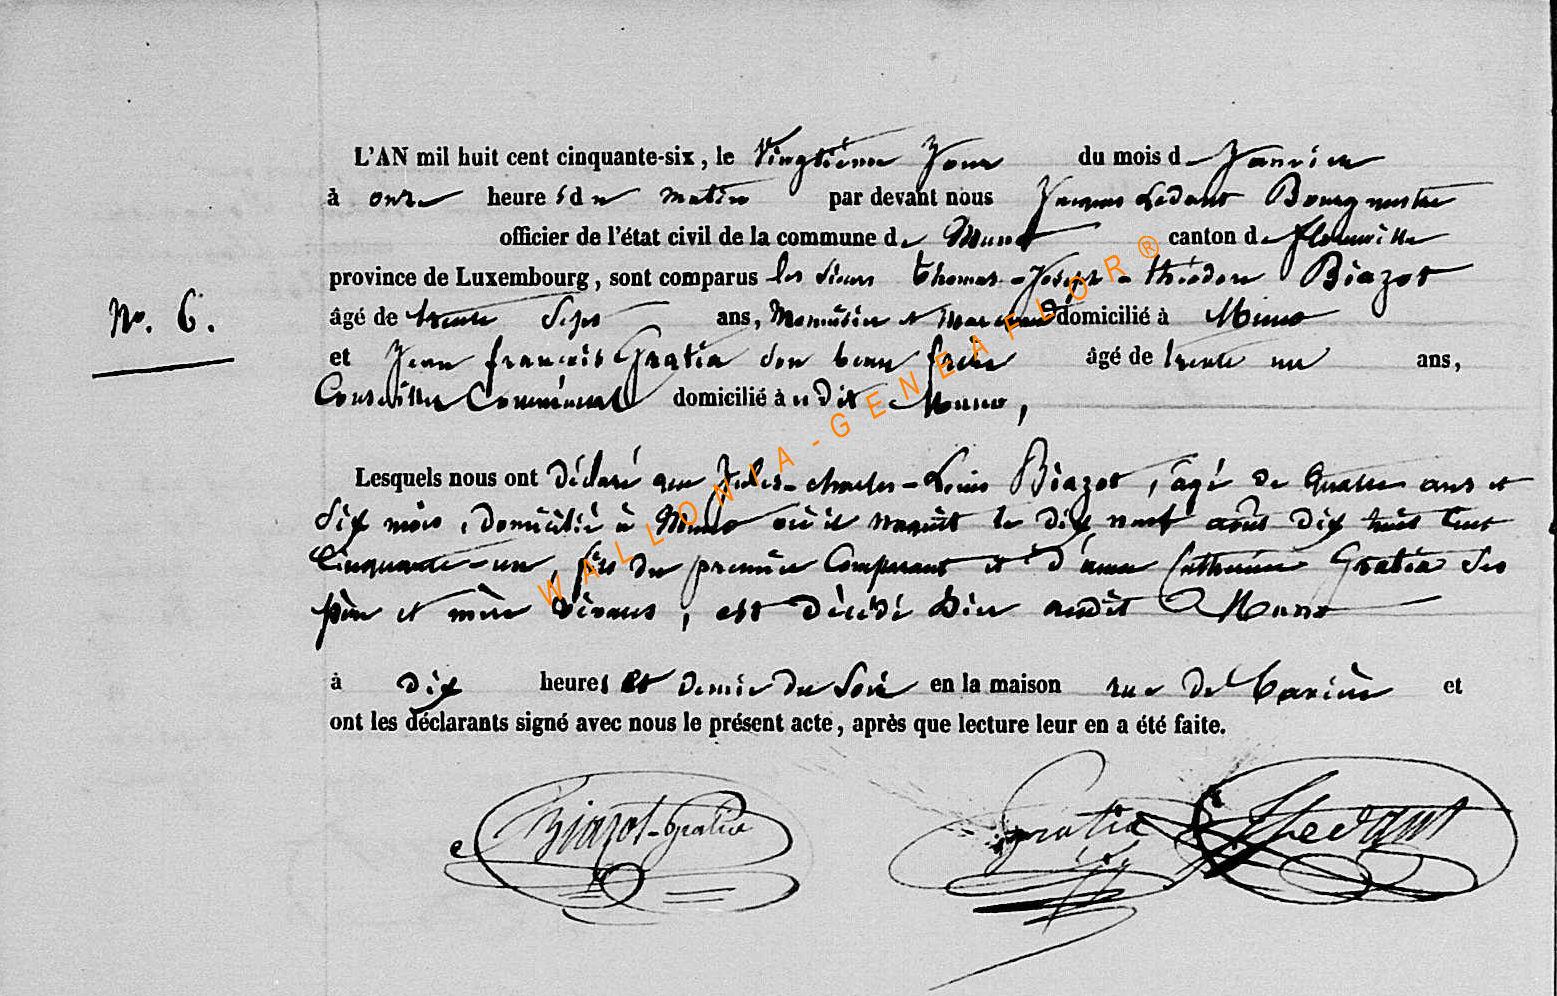 L'AN mil huit cent cinquante-six, le Vingtième Jour du mois de Janvier
à onze heures du matin par devant nous Jacques Ledant Bourgmestre
officier de l'état civil de la commune de Muno canton de florenville
province de Luxembourg, sont comparus les Sieurs Thomas-Joseph-théodore Biazot
N°. 6.
âgé de trente Sept ans, Menuisier et domicilié à Muno
et Jean françois Gratia Son beau frère âgé de trente un ans,
Conseiller Communal domicilié à udit Muno,
Lesquels nous ont déclaré que Jules-charles-Louis Biazot, âgé de quatre ans et
Six mois, domicilié à Muno où il naquit le dix neuf août dix huit Cent
Cinquante-un, fils du premier Comparant et d'anne Catherine Gratia Ses
père et mère vivans, est décédé hier audit Muno
à dix heures et demie du Soir en la maison rue de et
ont les déclarants signé avec nous le présent acte, après que lecture leur en a été faite.
Biazot-Gratia Gratia JLedant
WALLONIA-GENEAFLOR®